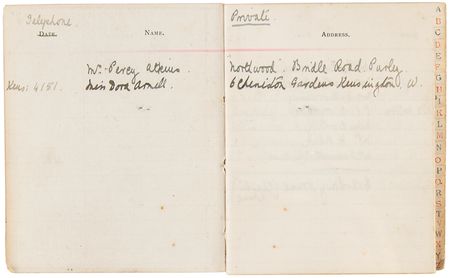 Telephone
DATE.
NAME.
Private
ADDRESS.
Mr. Percy Atkins.
"Northwood". Bridle Road. Purley.
Kens: 4151.
Miss Dora Arnell.
6 Cheniston Gardens Kensington, W.
A
B
C
D
E
F
G
H
I
K
L
M
N
O
P
Q
R
S
T
V
W
X
Y